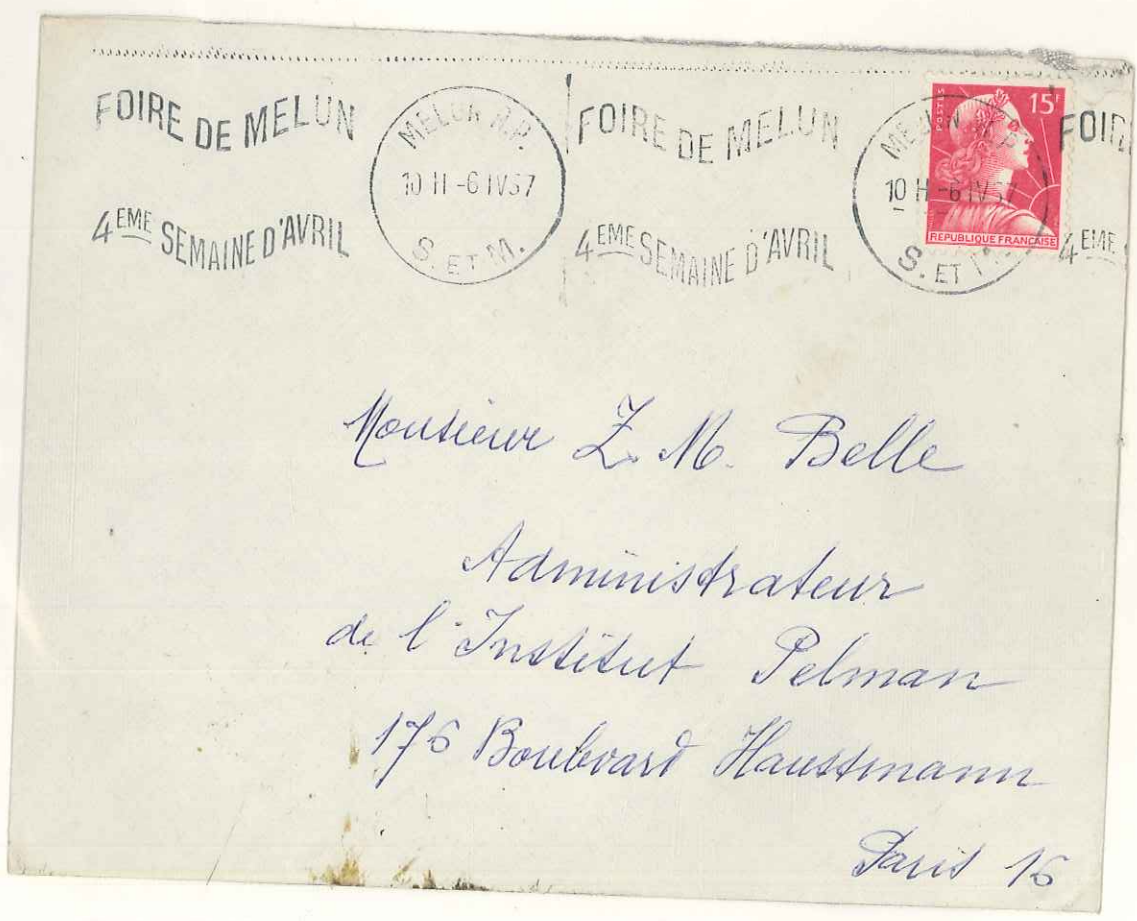 FOIRE DE MELUN
4EME SEMAINE D'AVRIL
MELUN R.P.
10 H -6 IV 57
S. ET M.
FOIRE DE MELUN
4EME SEMAINE D'AVRIL
MELUN R.P
10 H -6 IV 57
S. ET
POSTES
15F
REPUBLIQUE FRANCAISE
FOIR
4 EME
Monsieur Z. M. Belle
Administrateur
de l'Institut Pelman
176 Boulevard Haussmann
Paris 16